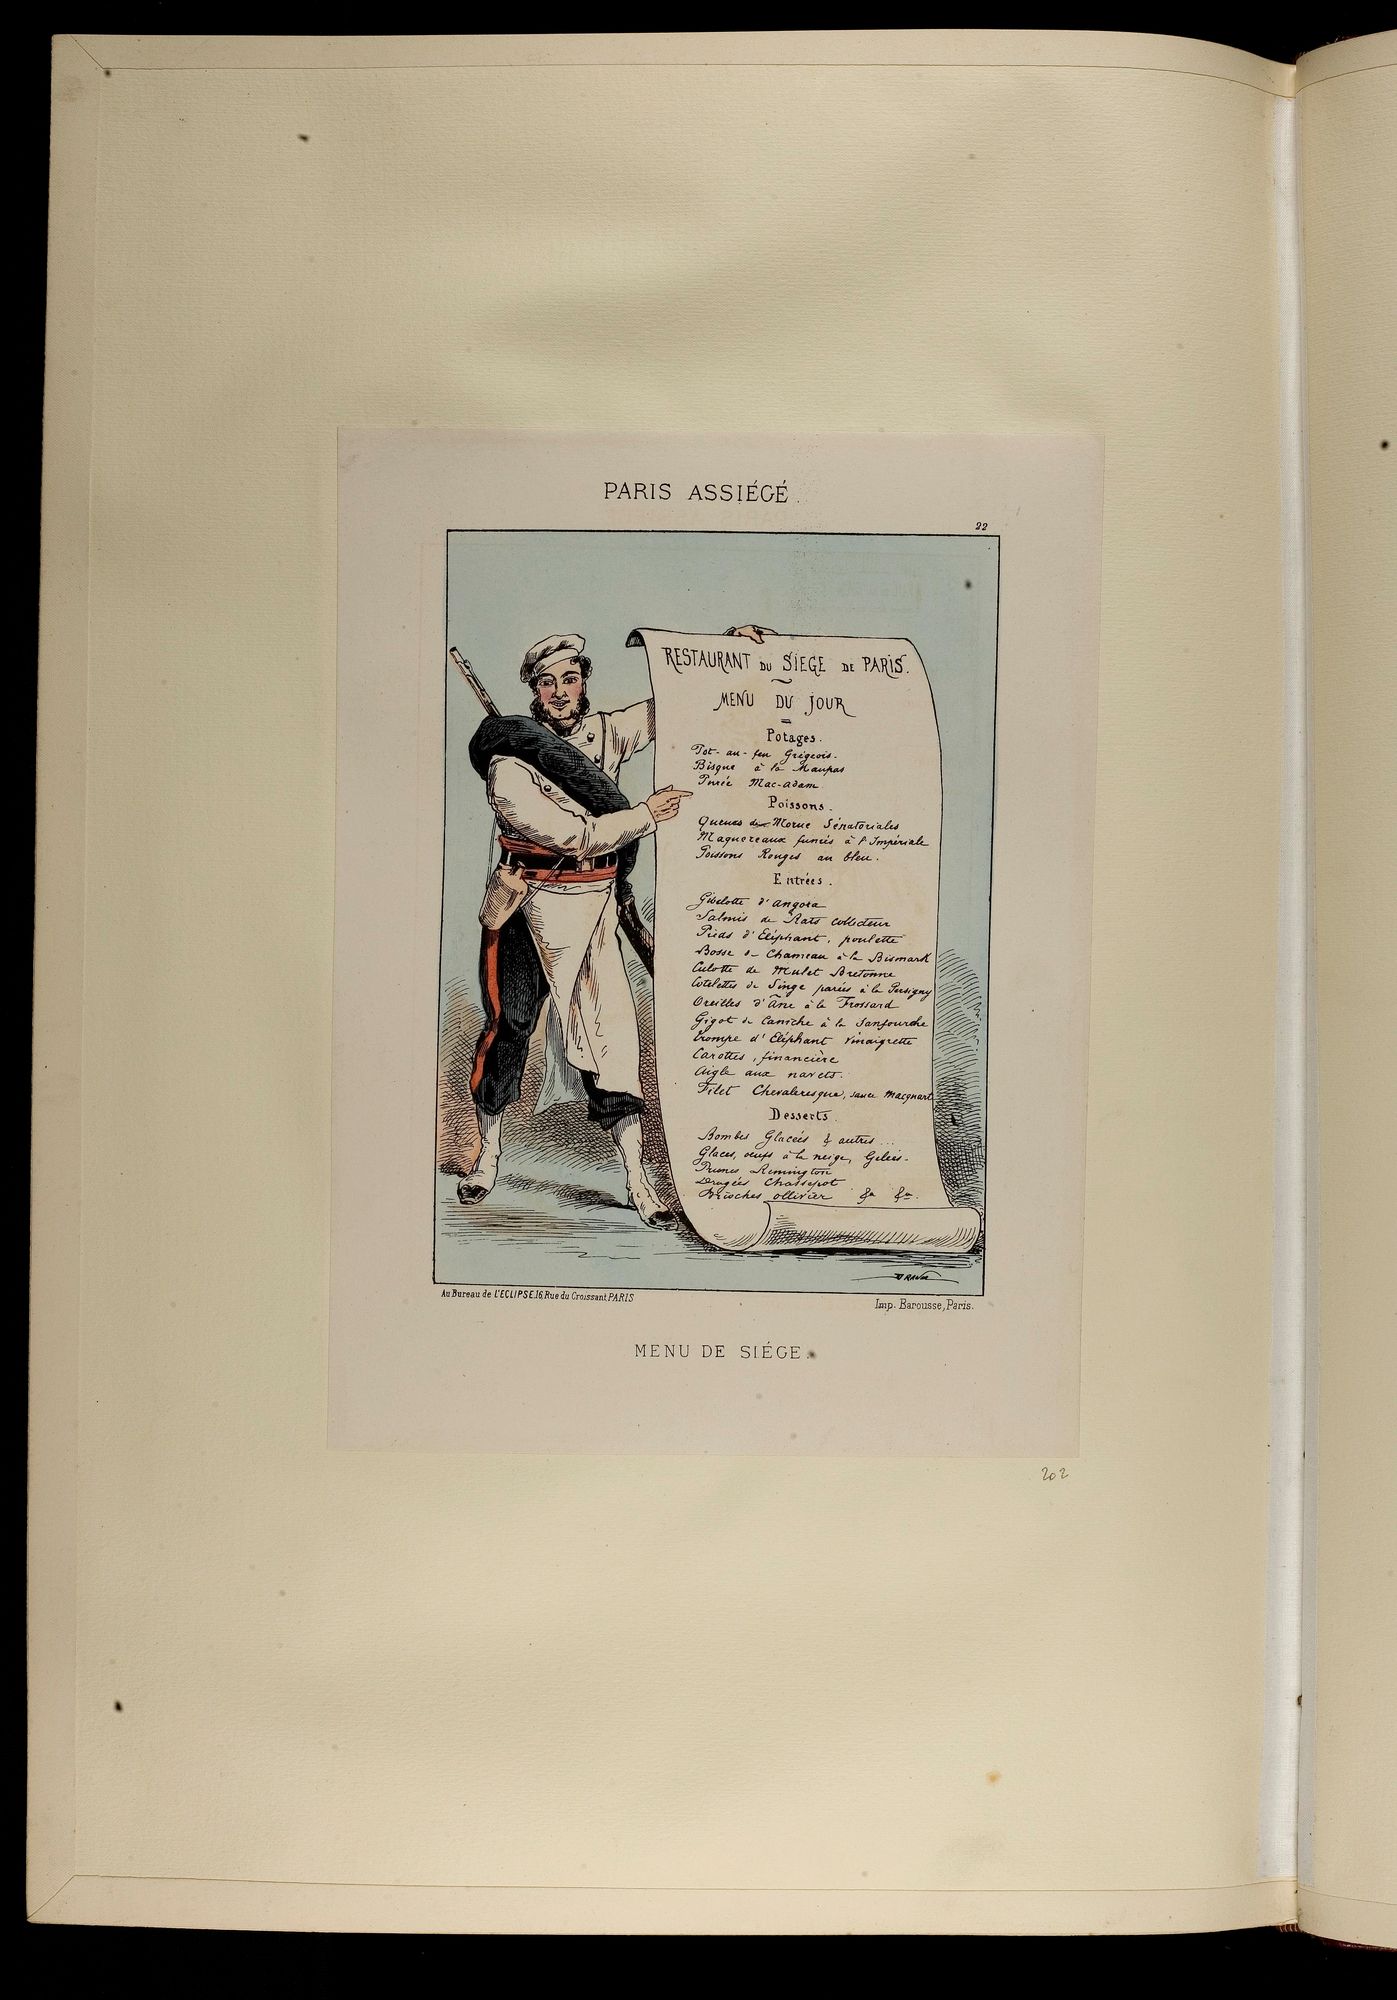 PARIS ASSIÉGÉ.
22
RESTAURANT DU SIEGE DE PARIS.
MENU DU JOUR
Potages.
Pot-au-feu Grégeois.
Bisque à la Maupas
Purée Mac-adam.
Poissons.
Queues de Morue Sénatoriales
Maquereaux fumés à l'Impériale
Poissons Rouges au bleu.
Entrées.
Gibelotte d'angora
Salmis de Rats collecteur
Pieds d'Eléphant, poulette
Bosse de Chameau à la Bismark
Culotte de Mulet Bretonne
Cotelettes de Singe parées à la Persigny
Oreilles d'Ane à la Frossard
Gigot de Caniche à la Sanfourche
Trompe d'Eléphant vinaigrette
Carottes, financière
Aigle aux navets.
Filet Chevaleresque, sauce Macquart
Desserts.
Bombes Glacées & autres...
Glaces, oeufs à la neige, Gelées.
Prunes Remington
Dragées Chassepot
Brioches ollivier &a &a.
DRANER
Au Bureau de L'ECLIPSE.16, Rue du Croissant, PARIS
Imp. Barousse, Paris.
MENU DE SIÉGE.
202